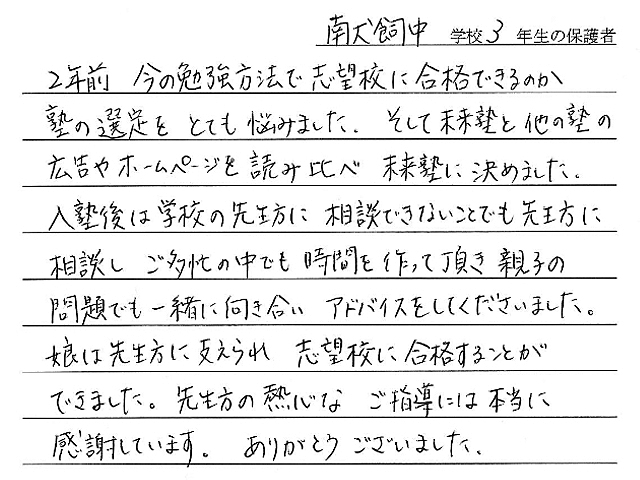 南犬飼中 学校 3 年生の保護者
2年前 今の勉強方法で志望校に合格できるのか
塾の選定を とても悩みました. そして未来塾と他の塾の
広告やホームページを読み比べ 未来塾に決めました.
入塾後は学校の先生方に 相談できないことでも先生方に
相談し ご多忙の中でも時間を作って頂き親子の
問題でも一緒に向き合い アドバイスをしてくださいました。
娘は先生方に支えられ 志望校に合格することが
できました。先生方の熱心な ご指導には本当に
感謝しています。 ありがとうございました.